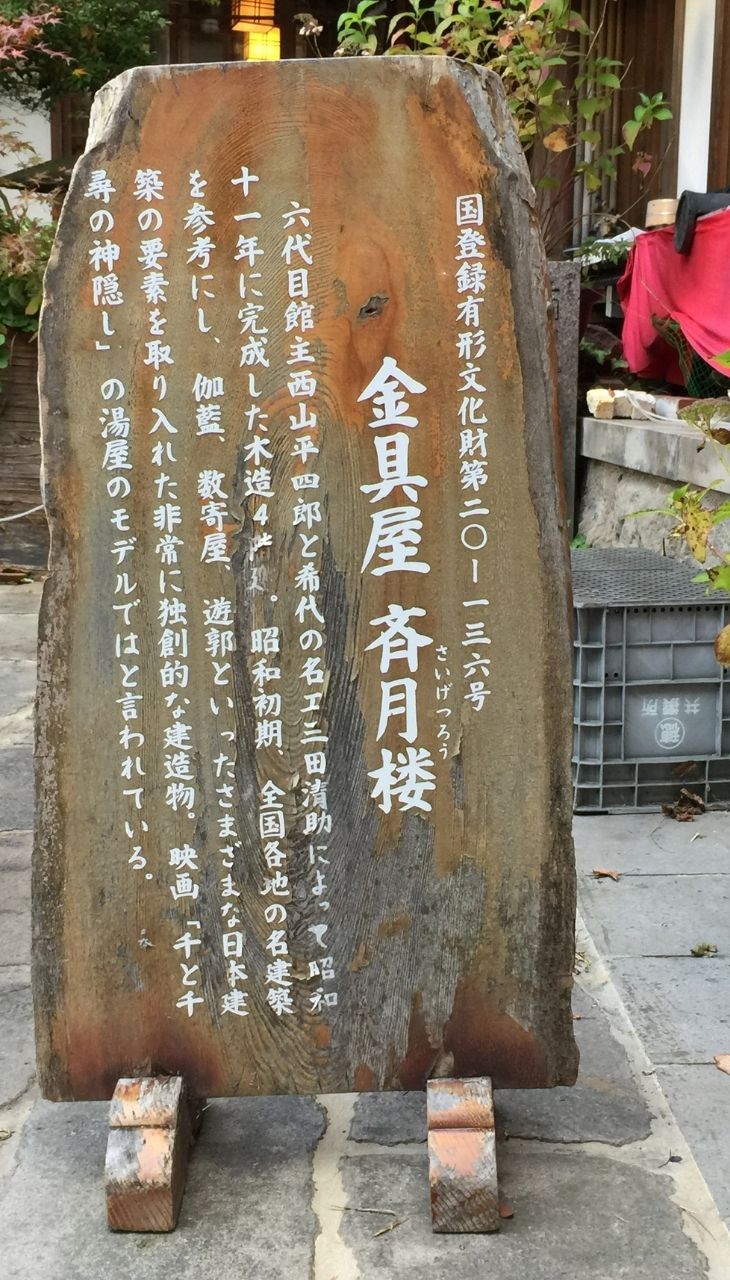 国登録有形文化財第二〇ー一三六号
さいげつろう
金具屋 斉月楼
六代目館主西山平四郎と希代の名工三田清助によって昭和
十一年に完成した木造4。昭和初期 全国各地の名建築
を参考にし、伽藍、数寄屋、遊郭といったさまざまな日本建
築の要素を取り入れた非常に独創的な建造物。映画「千と千
尋の神隠し」の湯屋のモデルではと言われている。
共撰所